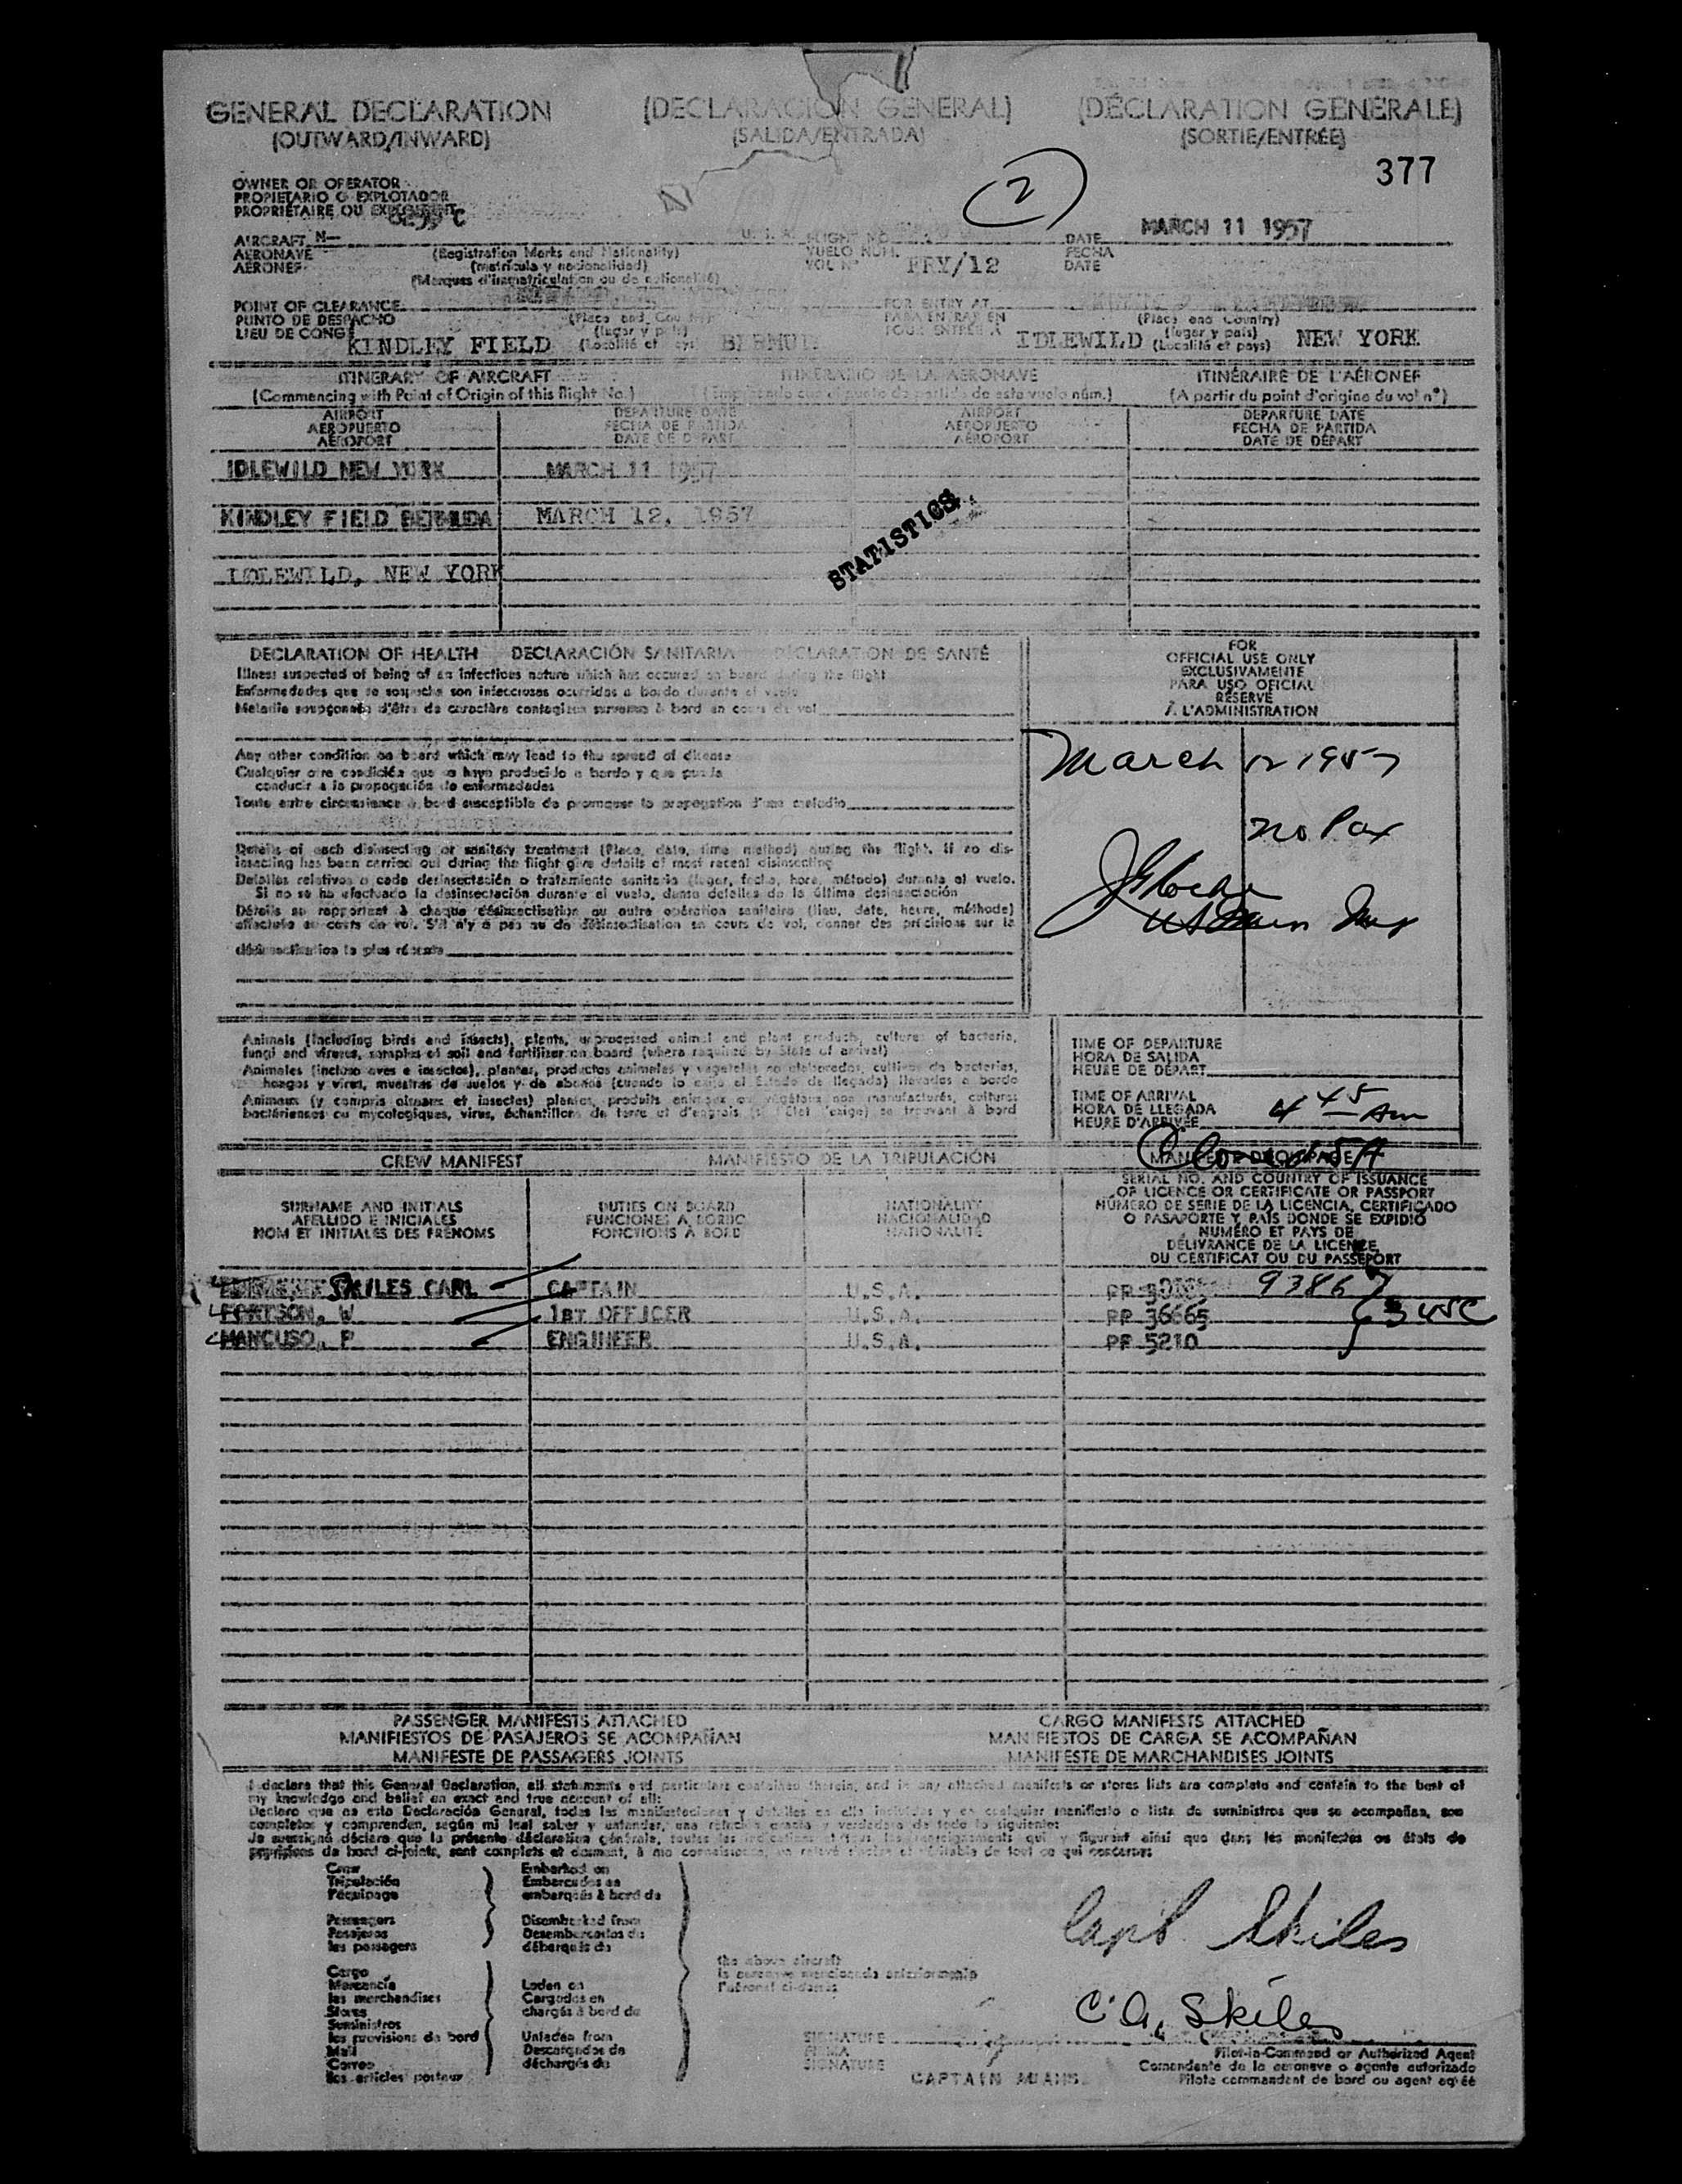 GENERAL DECLARATION (DECLARACIÓN GENERAL) (DÉCLARATION GÉNÉRALE)
(OUTWARD/INWARD) (SALIDA/ENTRADA) (SORTIE/ENTRÉE)
377
2
OWNER OR OPERATOR
PROPIETARIO O EXPLOTADOR
PROPRIÉTAIRE OU
MARCH 11 1957
AIRCRAFT N— U.S.A. FLIGHT NO. DATE
AERONAVE (Registration Marks and Nationality) VUELO NUM. FECHA
AÉRONEF (matrícula y nacionalidad) VOL Nº FRY/12 DATE
(Marques d'immatriculation ou de nationalité)
POINT OF CLEARANCE FOR ENTRY AT
PUNTO DE DESPACHO (Place and Country) PARA ENTRAR EN (Place and Country)
LIEU DE CONGÉ (lugar y país) POUR ENTRÉE À (lugar y país)
KINDLEY FIELD (Localité et pays) IDLEWILD (Localité et pays) NEW YORK
ITINERARY OF AIRCRAFT ITINERARIO DE LA AERONAVE ITINÉRAIRE DE L'AÉRONEF
(Commencing with Point of Origin of this flight No.) (Empezando con el punto de partida de este vuelo núm.) (A partir du point d'origine du vol nº)
AIRPORT DEPARTURE DATE AIRPORT DEPARTURE DATE
AEROPUERTO FECHA DE PARTIDA AEROPUERTO FECHA DE PARTIDA
AÉROPORT DATE DE DÉPART AÉROPORT DATE DE DÉPART
IDLEWILD NEW YORK MARCH 11 1957
KINDLEY FIELD BERMUDA MARCH 12, 1957
STATISTICS
IDLEWILD, NEW YORK
DECLARATION OF HEALTH DECLARACIÓN SANITARIA DÉCLARATION DE SANTÉ
Illness suspected of being of an infectious nature which has occured on board during the flight
Enfermedades que se sospecha son infecciosas ocurridas a bordo durante el vuelo
Maladie soupçonnée d'être de caractère contagieux survenue à bord en cours de vol
FOR
OFFICIAL USE ONLY
EXCLUSIVAMENTE
PARA USO OFICIAL
RÉSERVÉ
À L'ADMINISTRATION
Any other condition on board which may lead to the spread of disease
Cualquier otra condición que se haya producido a bordo y que pueda
conducir a la propagación de enfermedades
Toute autre circonstance à bord susceptible de provoquer la propagation d'une maladie
March 12 1957
no Pax
Details of each disinsecting or sanitary treatment (Place, date, time method) during the flight. If no dis-
insecting has been carried out during the flight give details of most recent disinsecting
Detalles relativos a cada desinsectación o tratamiento sanitario (lugar, fecha, hora, método) durante el vuelo.
Si no se ha efectuado la desinsectación durante el vuelo, dense detalles de la última desinsectación
Détails se rapportant à chaque désinsectisation ou autre opération sanitaire (lieu, date, heure, méthode)
effectuée au cours de vol. S'il n'y a pas eu de désinsectisation en cours de vol, donner des précisions sur la
désinsectisation la plus récente
Animals (including birds and insects), plants, unprocessed animal and plant products, cultures of bacteria,
fungi and viruses, samples of soil and fertilizer on board (where required by State of arrival)
Animales (incluso aves e insectos), plantas, productos animales y vegetales no elaborados, cultivos de bacterias,
hongos y virus, muestras de suelos y de abonos (cuando lo exija el Estado de llegada) llevados a bordo
Animaux (y compris oiseaux et insectes) plantes, produits animaux ou végétaux non manufacturés, cultures
bactériennes ou mycologiques, virus, échantillons de terre et d'engrais (si l'État l'exige) se trouvant à bord
TIME OF DEPARTURE
HORA DE SALIDA
HEURE DE DÉPART
TIME OF ARRIVAL
HORA DE LLEGADA 4 45 am
HEURE D'ARRIVÉE
CREW MANIFEST MANIFIESTO DE LA TRIPULACIÓN
SURNAME AND INITIALS DUTIES ON BOARD NATIONALITY
APELLIDO E INICIALES FUNCIONES A BORDO NACIONALIDAD
NOM ET INITIALES DES PRÉNOMS FONCTIONS À BORD NATIONALITÉ
SERIAL NO. AND COUNTRY OF ISSUANCE
OF LICENCE OR CERTIFICATE OR PASSPORT
NÚMERO DE SERIE DE LA LICENCIA, CERTIFICADO
O PASAPORTE Y PAÍS DONDE SE EXPIDIÓ
NUMÉRO ET PAYS DE
DÉLIVRANCE DE LA LICENCE
DU CERTIFICAT OU DU PASSEPORT
SKILES CARL CAPTAIN U.S.A. PP 93867
FORTSON, W 1ST OFFICER U.S.A. PP 36665 3 USC
MANCUSO, P ENGINEER U.S.A. PP 5210
PASSENGER MANIFESTS ATTACHED CARGO MANIFESTS ATTACHED
MANIFIESTOS DE PASAJEROS SE ACOMPAÑAN MANIFIESTOS DE CARGA SE ACOMPAÑAN
MANIFESTE DE PASSAGERS JOINTS MANIFESTE DE MARCHANDISES JOINTS
I declare that this General Declaration, all statements and particulars contained therein, and in any attached manifests or stores lists are complete and contain to the best of
my knowledge and belief an exact and true account of all:
Declaro que en esta Declaración General, todas las manifestaciones y detalles en ella incluidos y en cualquier manifiesto o lista de suministros que se acompañan, son
completos y comprenden, según mi leal saber y entender, una relación exacta y verdadera de todo lo siguiente:
Je soussigné déclare que la présente déclaration générale, toutes les indications et tous les renseignements qui y figurent ainsi que dans les manifestes ou états de
provisions de bord ci-joints, sont complets et donnent, à ma connaissance, un relevé exact et véritable de tout ce qui concerne:
Crew Embarked on
Tripulación Embarcados en
l'équipage embarqués à bord de
Passengers Disembarked from
Pasajeros Desembarcados de
les passagers débarqués de
Capt. Skiles
the above aircraft
la aeronave mencionada anteriormente
l'aéronef ci-dessus
Cargo
Mercancía Loden on
les marchandises Cargados en
Stores chargés à bord de
Suministros
les provisions de bord Unladen from
Mail Descargados de
Correo déchargés de
les articles postaux
C.A. Skiles
SIGNATURE
FIRMA
SIGNATURE
Pilot-in-Command or Authorized Agent
Comandante de la aeronave o agente autorizado
Pilote commandant de bord ou agent agréé
CAPTAIN